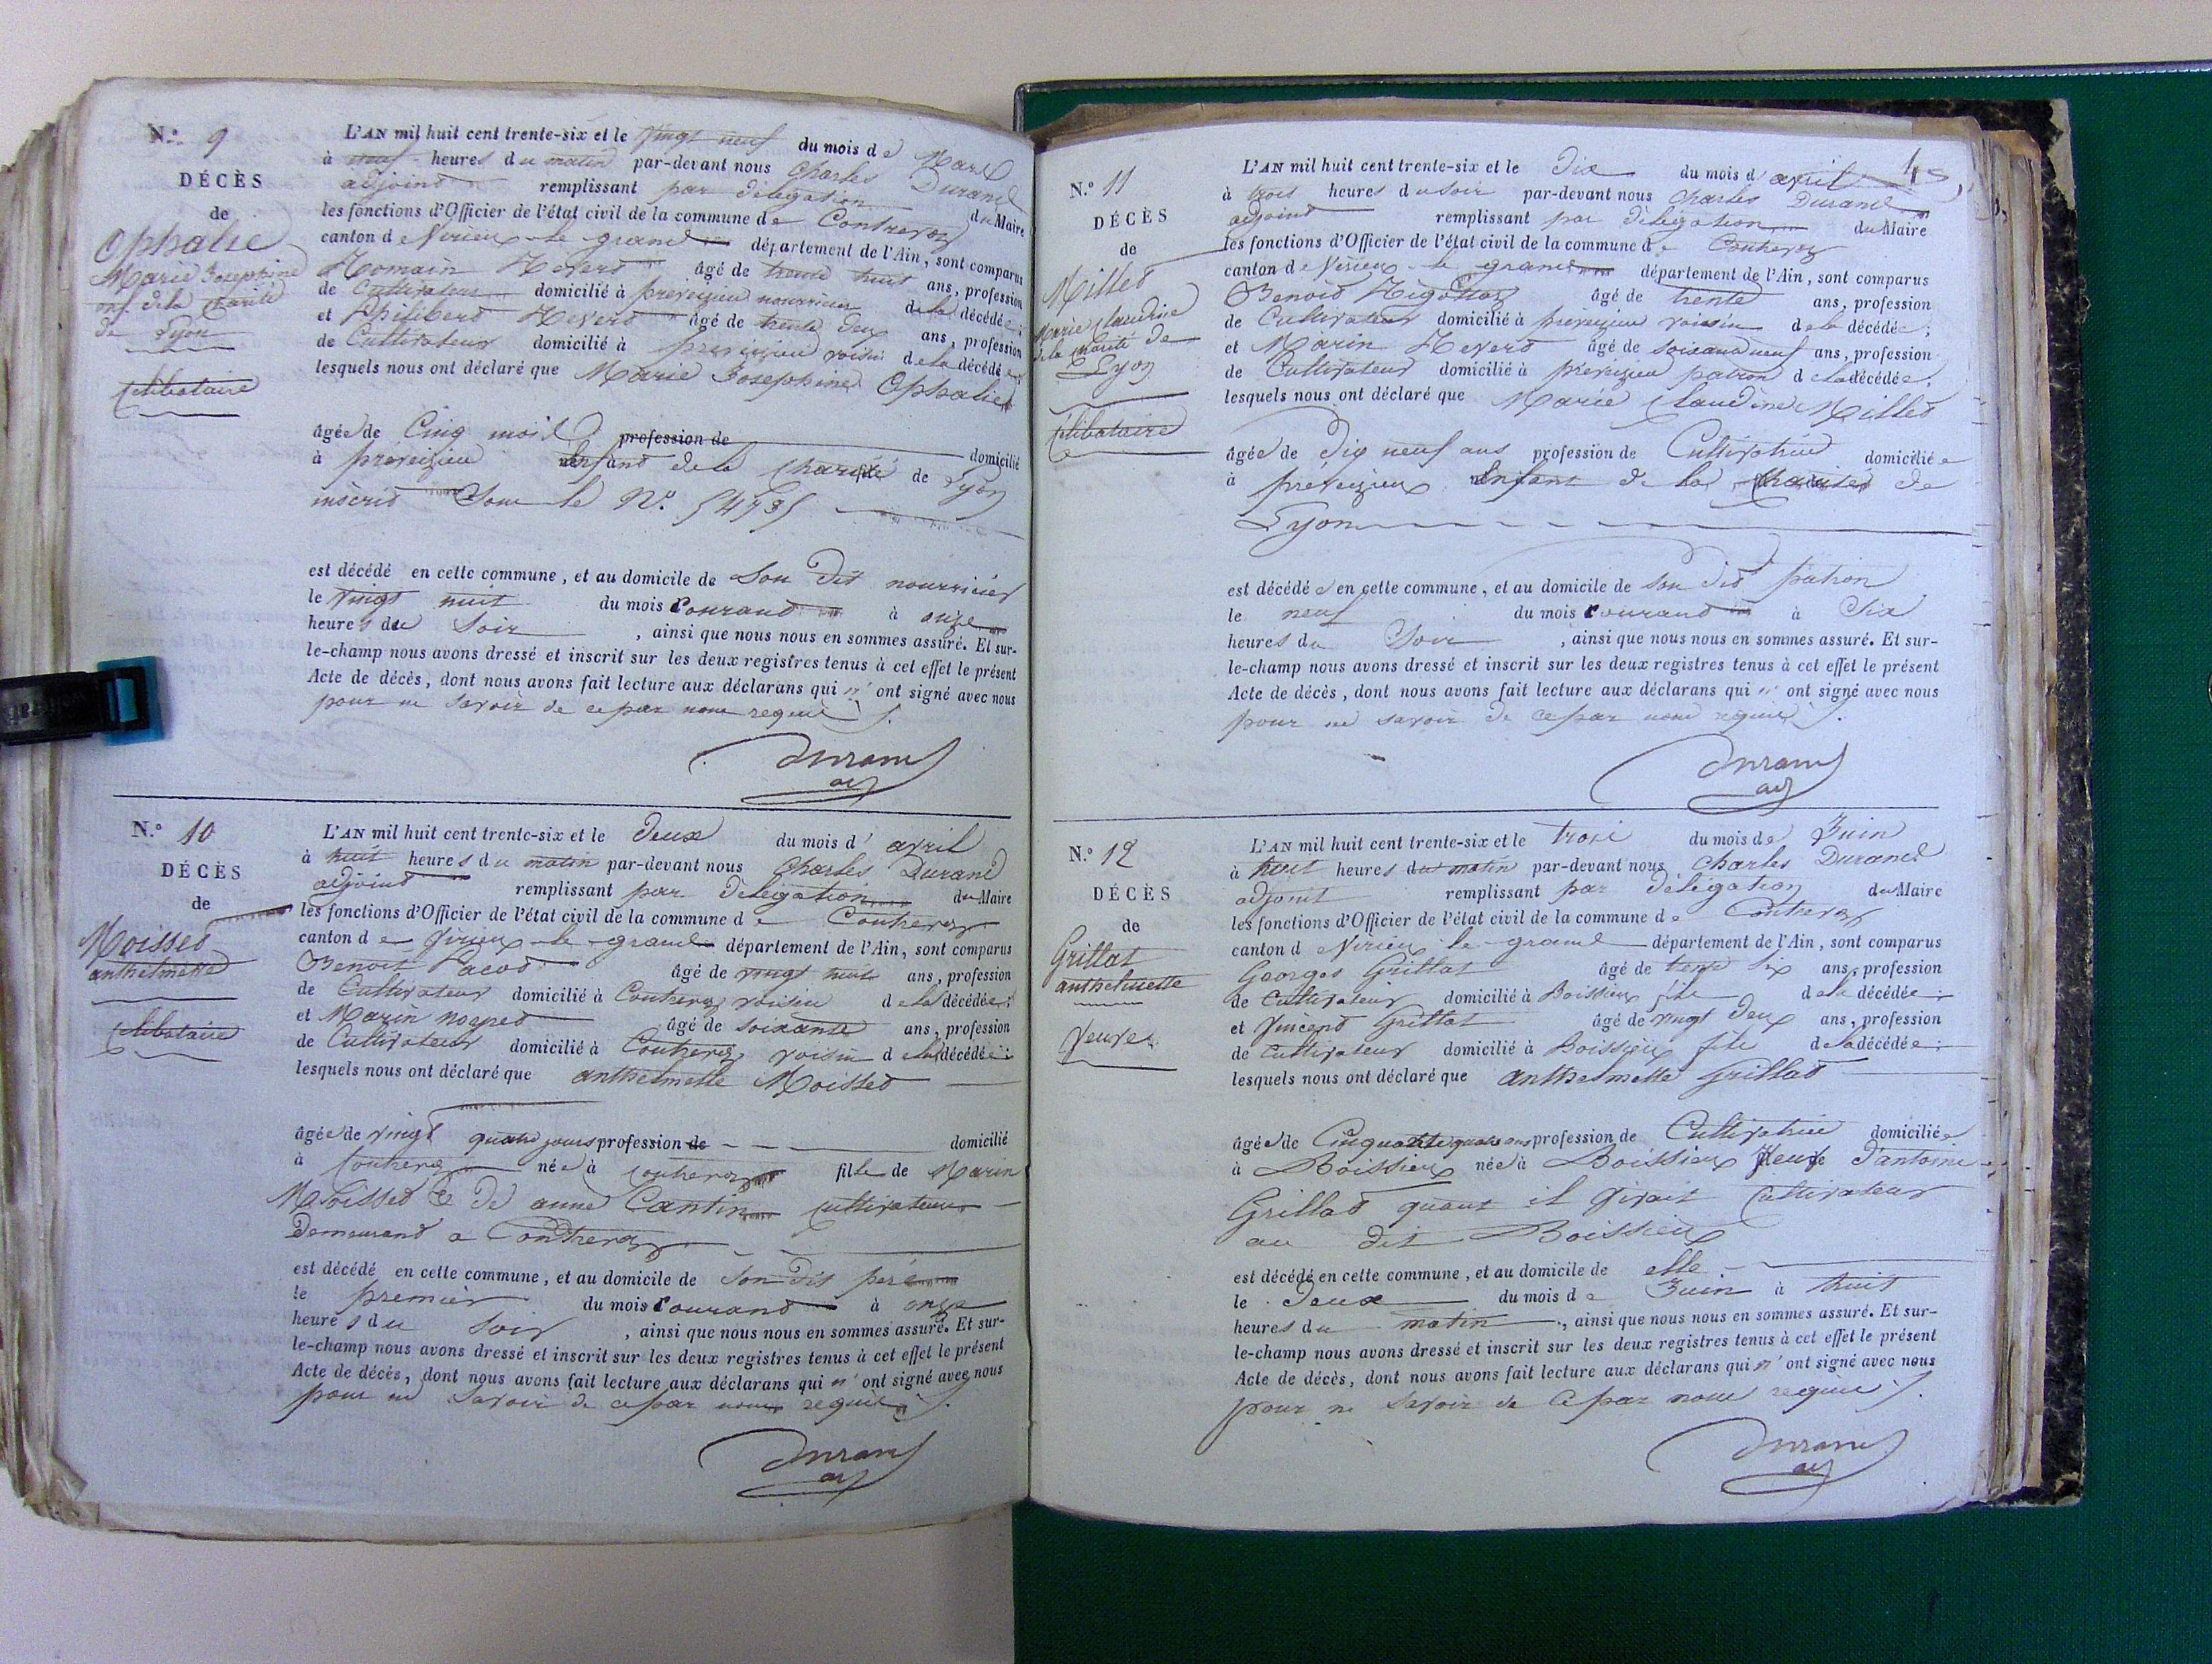 N.º 9
DÉCÈS
de
Ophalie
Marie Josephine
enf. de la Charité
de Lyon
Célibataire
L'AN mil huit cent trente-six et le Vingt neuf du mois de Mars
à neuf heures du matin par-devant nous Charles Durand
adjoint remplissant par délégation du Maire
les fonctions d'Officier de l'état civil de la commune de Contrevoz
canton de Virieu-le-grand département de l'Ain, sont comparus
Romain âgé de trente huit ans, profession
de Cultivateur domicilié à preveizieu nourricier de la décédée;
et Philibert âgé de trente deux ans, profession
de Cultivateur domicilié à preveizieu voisin de la décédée;
lesquels nous ont déclaré que Marie Josephine Ophalie
âgée de Cinq mois profession de domicilié
à preveizieu Enfant de la Charité de Lyon
inscrit Sous le Nº.
est décédé en cette commune, et au domicile de Son dit nourricier
le Vingt huit du mois courant à onze
heures du Soir, ainsi que nous nous en sommes assuré. Et sur-
le-champ nous avons dressé et inscrit sur les deux registres tenus à cet effet le présent
Acte de décès, dont nous avons fait lecture aux déclarans qui n'ont signé avec nous
pour ne savoir de ce par nous requis
Durand
adj
N.º 10
DÉCÈS
de
Moisset
anthelmette
Célibataire
L'AN mil huit cent trente-six et le Deux du mois d'avril
à huit heures du matin par-devant nous Charles Durand
adjoint remplissant par Délégation du Maire
les fonctions d'Officier de l'état civil de la commune de Contrevoz
canton de Virieu-le-grand département de l'Ain, sont comparus
Benoit Pacod âgé de vingt huit ans, profession
de Cultivateur domicilié à Contrevoz voisin de la décédée;
et Marin âgé de soixante ans, profession
de Cultivateur domicilié à Contrevoz voisin de la décédée;
lesquels nous ont déclaré que anthelmette Moisset
âgée de vingt quatre jours profession de domicilié
à Contrevoz née à Contrevoz fille de Marin
Moisset & De anne Cantin Cultivateurs
Demeurant a Contrevoz
est décédé en cette commune, et au domicile de Son Dit père
le premier du mois courant à onze
heures du Soir, ainsi que nous nous en sommes assuré. Et sur-
le-champ nous avons dressé et inscrit sur les deux registres tenus à cet effet le présent
Acte de décès, dont nous avons fait lecture aux déclarans qui n'ont signé avec nous
pour ne Savoir de ce par nous requis
Durand
adj
N.º 11
DÉCÈS
de
Millet
Marie Claudine
de la charité de
Lyon
Célibataire
L'AN mil huit cent trente-six et le Dix du mois d'avril
à trois heures du soir par-devant nous Charles Durand
adjoint remplissant par Délégation du Maire
les fonctions d'Officier de l'état civil de la commune de Contrevoz
canton de Virieu-le-grand département de l'Ain, sont comparus
Benoit âgé de trente ans, profession
de Cultivateur domicilié à préveizieu voisin de la décédée;
et Marin âgé de soixante neuf ans, profession
de Cultivateur domicilié à préveizieu patron de la décédée;
lesquels nous ont déclaré que Marie Claudine Millet
âgée de Dix neuf ans profession de Cultivatrice domiciliée
à préveizieu Enfant de la Charité de
Lyon
est décédée en cette commune, et au domicile de son dit patron
le neuf du mois courant à Six
heures du Soir, ainsi que nous nous en sommes assuré. Et sur-
le-champ nous avons dressé et inscrit sur les deux registres tenus à cet effet le présent
Acte de décès, dont nous avons fait lecture aux déclarans qui n'ont signé avec nous
pour ne savoir de ce par nous requis
Durand
adj
N.º 12
DÉCÈS
de
Grillat
anthelmette
Veuve
L'AN mil huit cent trente-six et le trois du mois de Juin
à huit heures du matin par-devant nous Charles Durand
adjoint remplissant par Délégation du Maire
les fonctions d'Officier de l'état civil de la commune de Contrevoz
canton de Virieu-le-grand département de l'Ain, sont comparus
Georges Grillat âgé de trente Six ans, profession
de Cultivateur domicilié à Boissieu fils de la décédée;
et Vincent Grillat âgé de vingt Deux ans, profession
de Cultivateur domicilié à Boissieu fils de la décédée;
lesquels nous ont déclaré que anthelmette Grillat
âgée de Cinquante quatre ans profession de Cultivatrice domiciliée
à Boissieu née à Boissieu Veuve D'antoine
Grillat quant il vivait Cultivateur
au dit Boissieu
est décédé en cette commune, et au domicile de elle
le Deux du mois de Juin à huit
heures du matin, ainsi que nous nous en sommes assuré. Et sur-
le-champ nous avons dressé et inscrit sur les deux registres tenus à cet effet le présent
Acte de décès, dont nous avons fait lecture aux déclarans qui n'ont signé avec nous
pour ne Savoir de ce par nous requis
Durand
adj